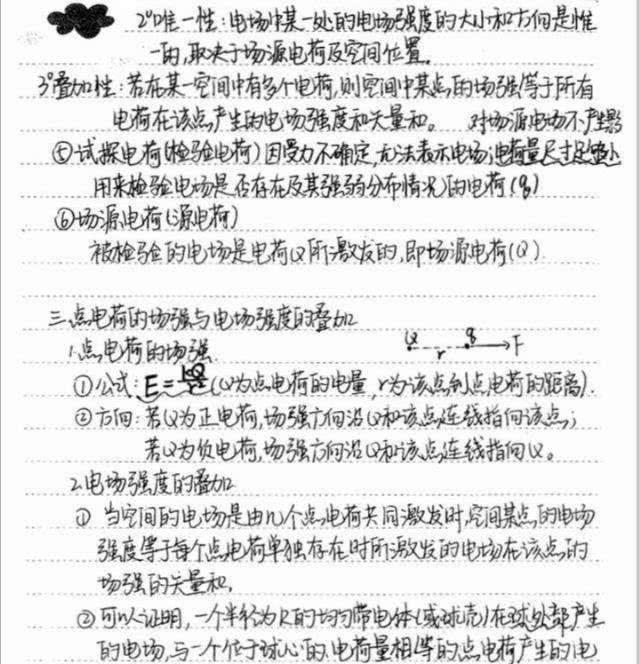 2°唯一性：电场中某一处的电场强度的大小和方向是惟
一的，取决于场源电荷及空间位置。
3°叠加性：若在某一空间中有多个电荷，则空间中某点的场强等于所有
电荷在该点产生的电场强度和矢量和。 对场源电场不产生影
⑤试探电荷(检验电荷)因受力不确定，无法表示电场；电荷量尺寸足够小
用来检验电场是否存在及其强弱分布情况的电荷(q)
⑥场源电荷(源电荷)
被检验的电场是电荷Q所激发的，即场源电荷(Q).
三.点电荷的场强与电场强度的叠加
1.点电荷的场强. Q r q F
①公式：E=kQ/r²(Q为点电荷的电量，r为该点到点电荷的距离).
②方向：若Q为正电荷，场强方向沿Q和该点连线指向该点；
若Q为负电荷，场强方向沿Q和该点连线指向Q。
2.电场强度的叠加
① 当空间的电场是由几个点电荷共同激发时，空间某点的电场
强度等于每个点电荷单独存在时所激发的电场在该点的
场强的矢量和，
②可以证明，一个半径为R的均匀带电体(或球壳)在球外部产生
的电场，与一个位于球心的、电荷量相等的点电荷产生的电